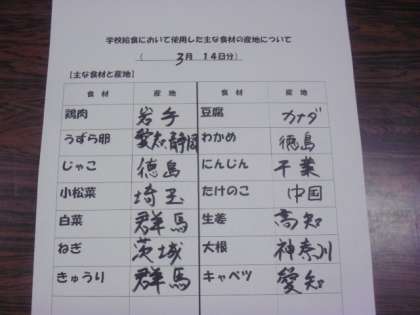 学校給食において使用した主な食材の産地について
( 3月 14日分)
【主な食材と産地】
食材 産地 食材 産地
鶏肉 岩手 豆腐 カナダ
うずら卵 愛知、静岡 わかめ 徳島
じゃこ 徳島 にんじん 千葉
小松菜 埼玉 たけのこ 中国
白菜 群馬 生姜 高知
ねぎ 茨城 大根 神奈川
きゅうり 群馬 キャベツ 愛知